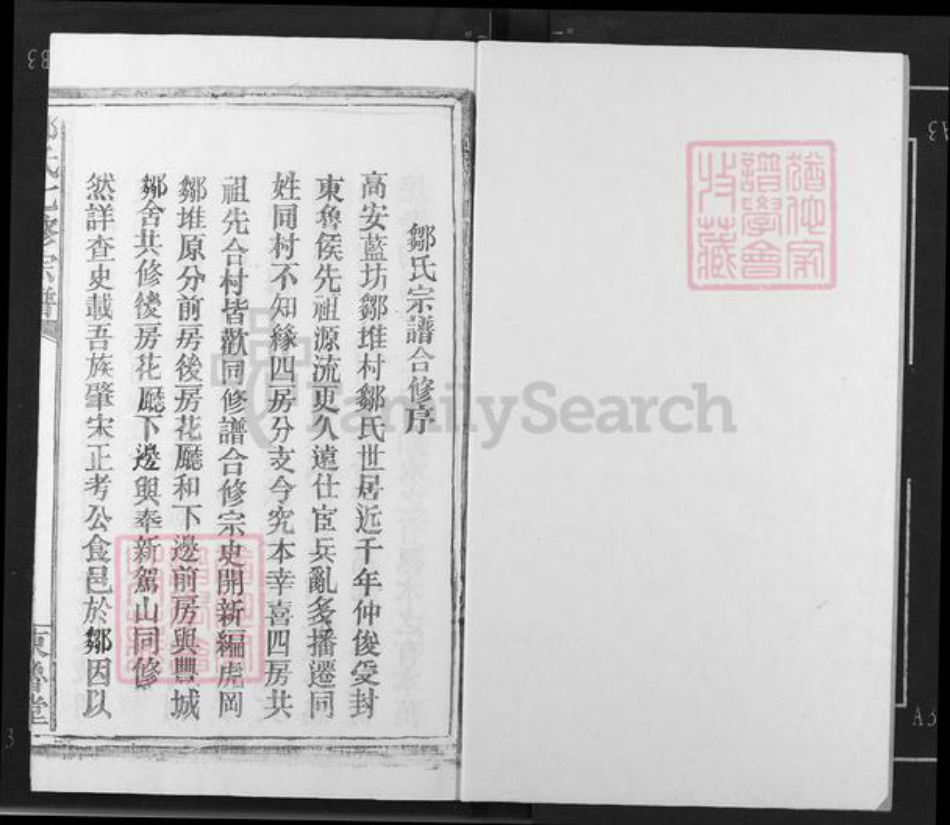 鄒氏宗譜合修序
高安藍坊鄒堆村鄒氏世居近千年仲俊受封
東魯侯先祖源流更久遠仕宦兵亂多播遷同
姓同村不知緣四房分支今究本幸喜四房共
祖先合村皆歡同修譜合修宗史開新編虎岡
鄒堆原分前房後房花廳和下邊前房與豐城
鄒舍共修後房花廳下邊與奉新駕山同修
然詳查史載吾族肇宋正考公食邑於鄒因以
氏七修宗譜
東魯堂
譜學會
收藏
FamilySearch
A3
A3
B3
3